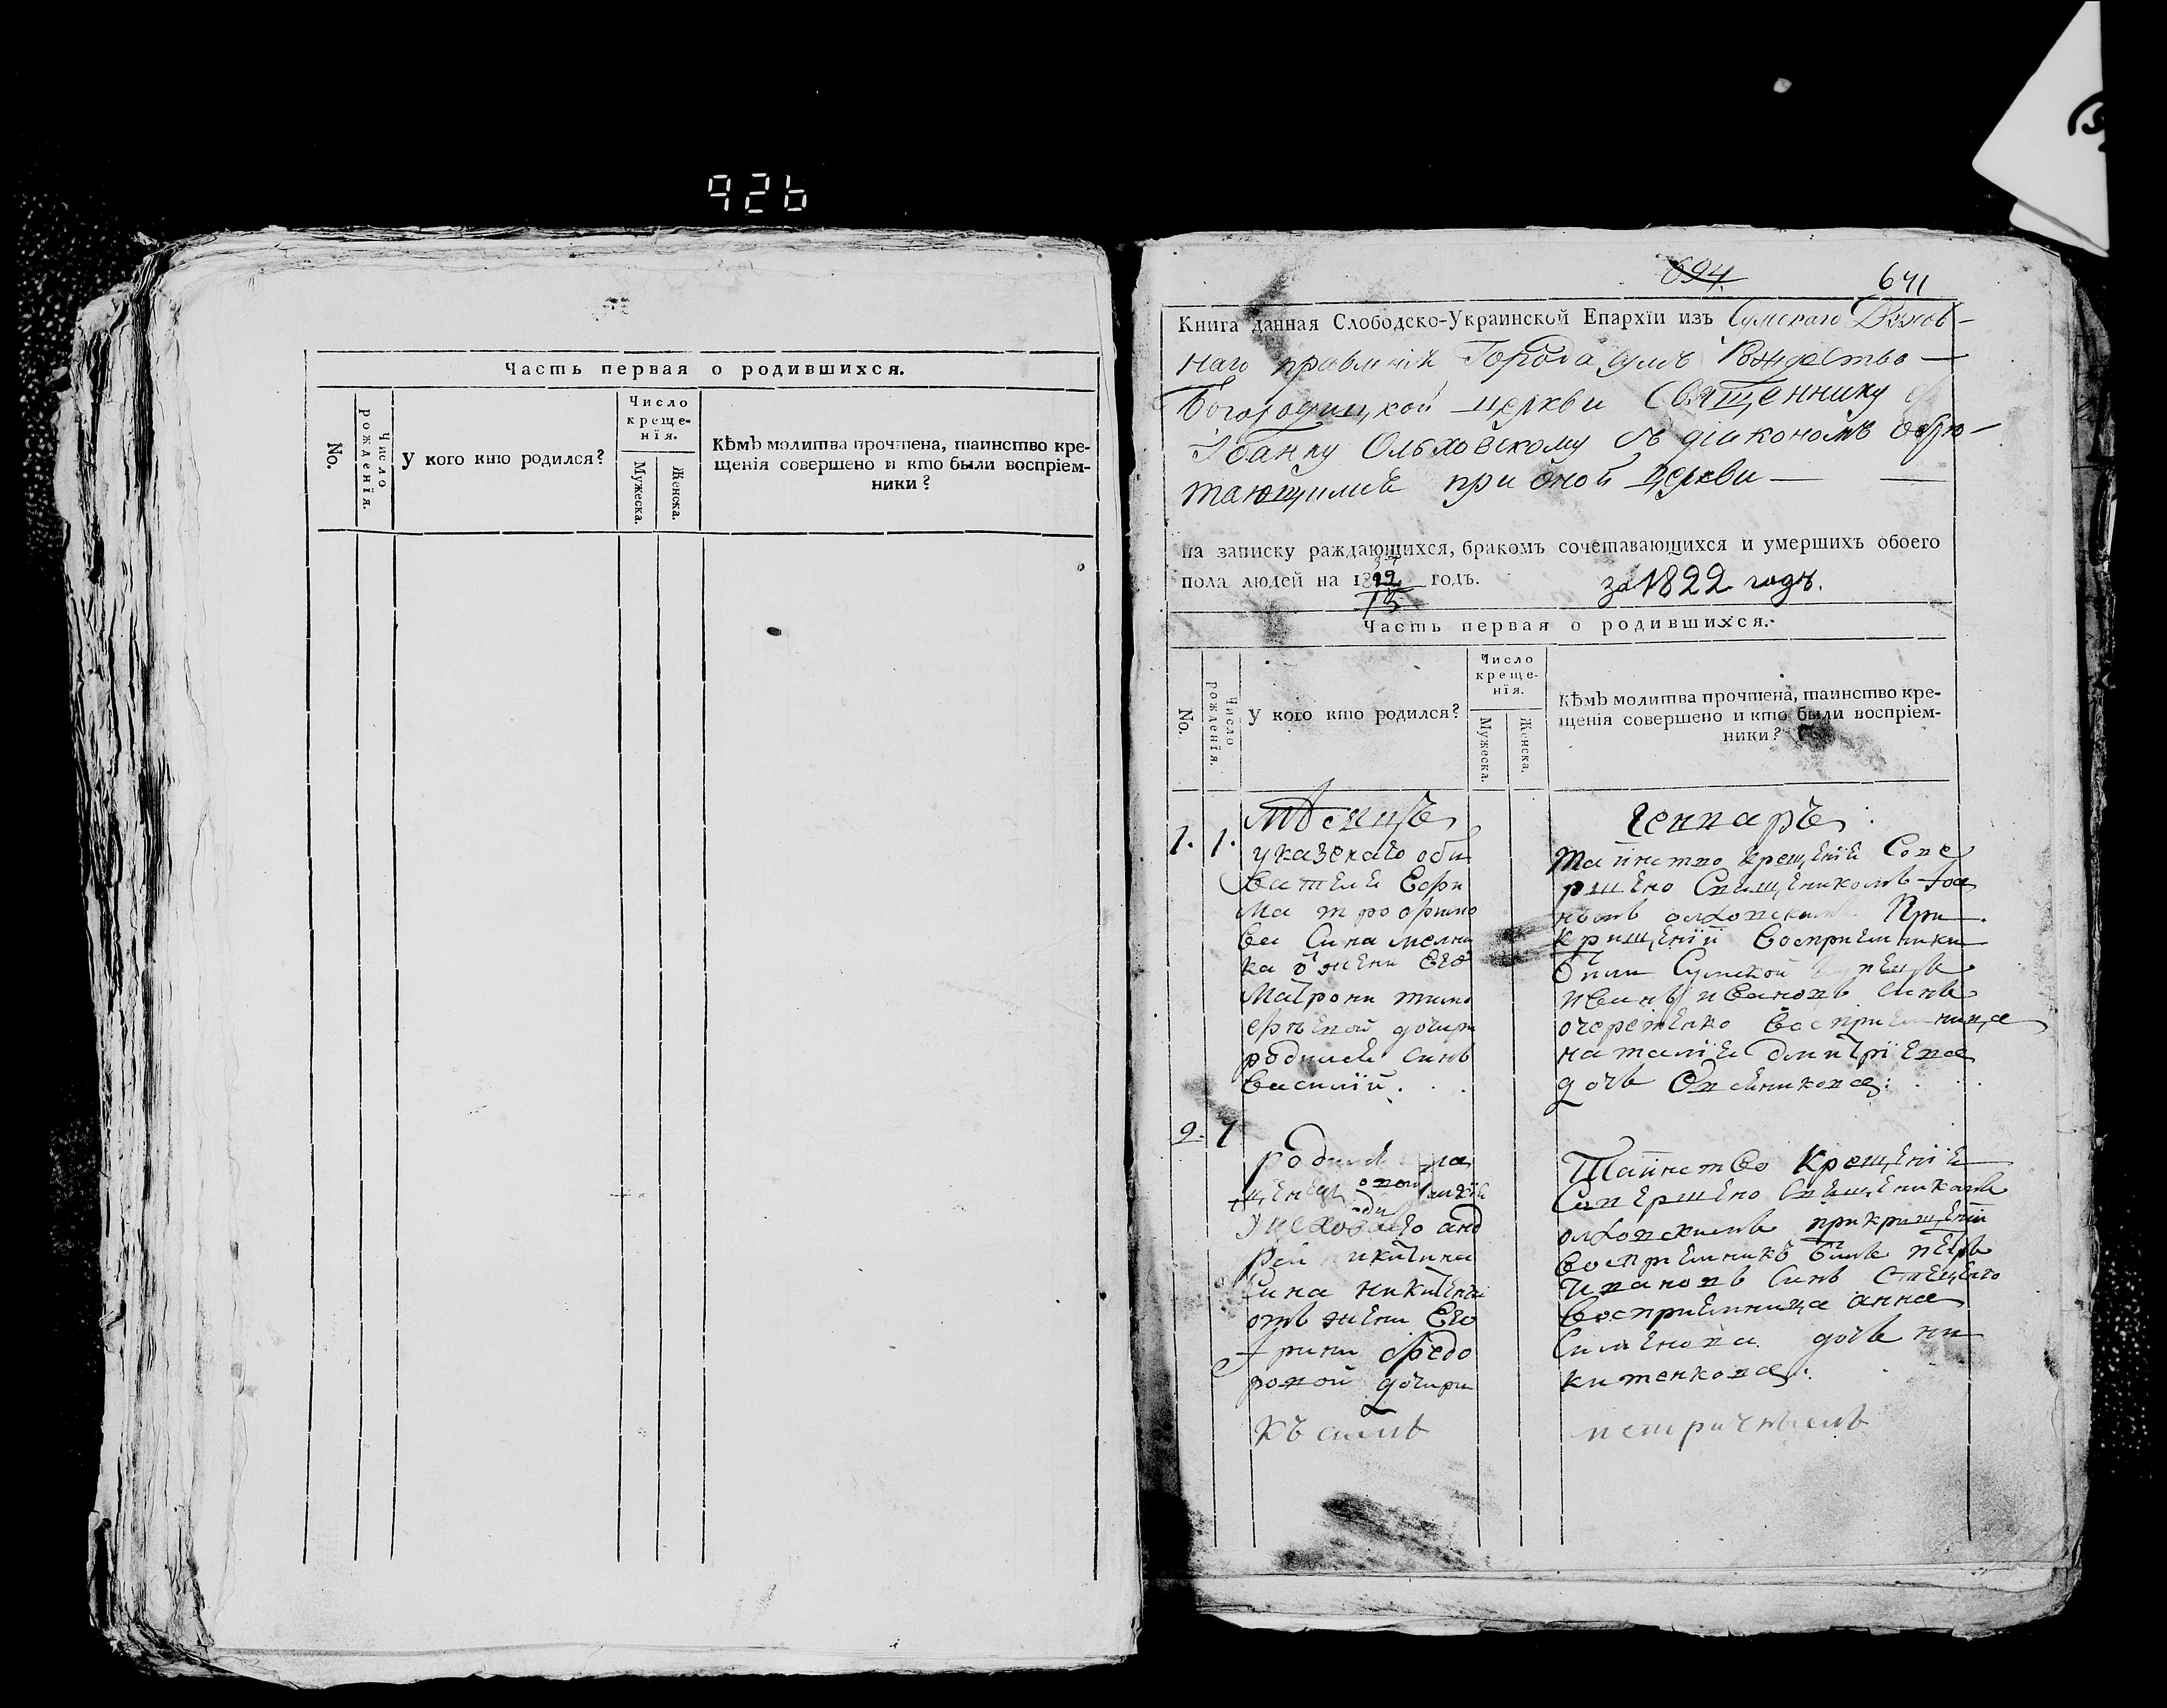 926
Часть первая о родившихся.
No.
Число рожденїя.
У кого кто родился?
Число креще-нїя.
Мужеска.
Женска.
Кѣмъ молитва прочтена, таинство кре-
щенія совершено и кто были воспріем-
ники?
694
641
Книга данная Слободско-Украинской Епархїи изъ Сумскаго Духов-
наго правленія Города Сумъ Рождество—
Богородицкой церкви Священнику
Іоанну Ольховскому съ діакономъ обрѣ-
тающимся при оной церкви —
на записку раждающихся, бракомъ сочетавающихся и умершихъ обоего
пола людей на 1822 годъ. за 1822 годъ.
Часть первая о родившихся.
No.
Число рожденїя.
У кого кто родился?
Число креще-нїя.
Мужеска.
Женска.
Кѣмъ молитва прочтена, таинство кре-
щенія совершено и кто были воспріем-
ники?
мѣсяцъ
Геннаръ
1. 1.
оби
вателя Ефи
ма трофимо
ва Сина мелни
ка жени Его
Матрони тимо
фѣевой дочири
родился синъ
василій.
Тайнство крещенія Сове
ршено Священикомъ Иоа
номъ олховскимъ При
крищеніи восприемники
били Сумской купецъ
иванъ ивановъ синъ
очеретенко восприемница
наталія дмитріева
дочь
2. 1
родился
анд
рей никитина
Сина никитенка
отъ жени Его
Ирини Федо
ровой дочири
Тайнство Крещеніе
Совершено Священикомъ
олховскимъ прикрищеніи
восприемникъ билъ петръ
Ивановъ Синъ
восприемница анна
Симѣонова дочь ни
китенкова:
къ симъ